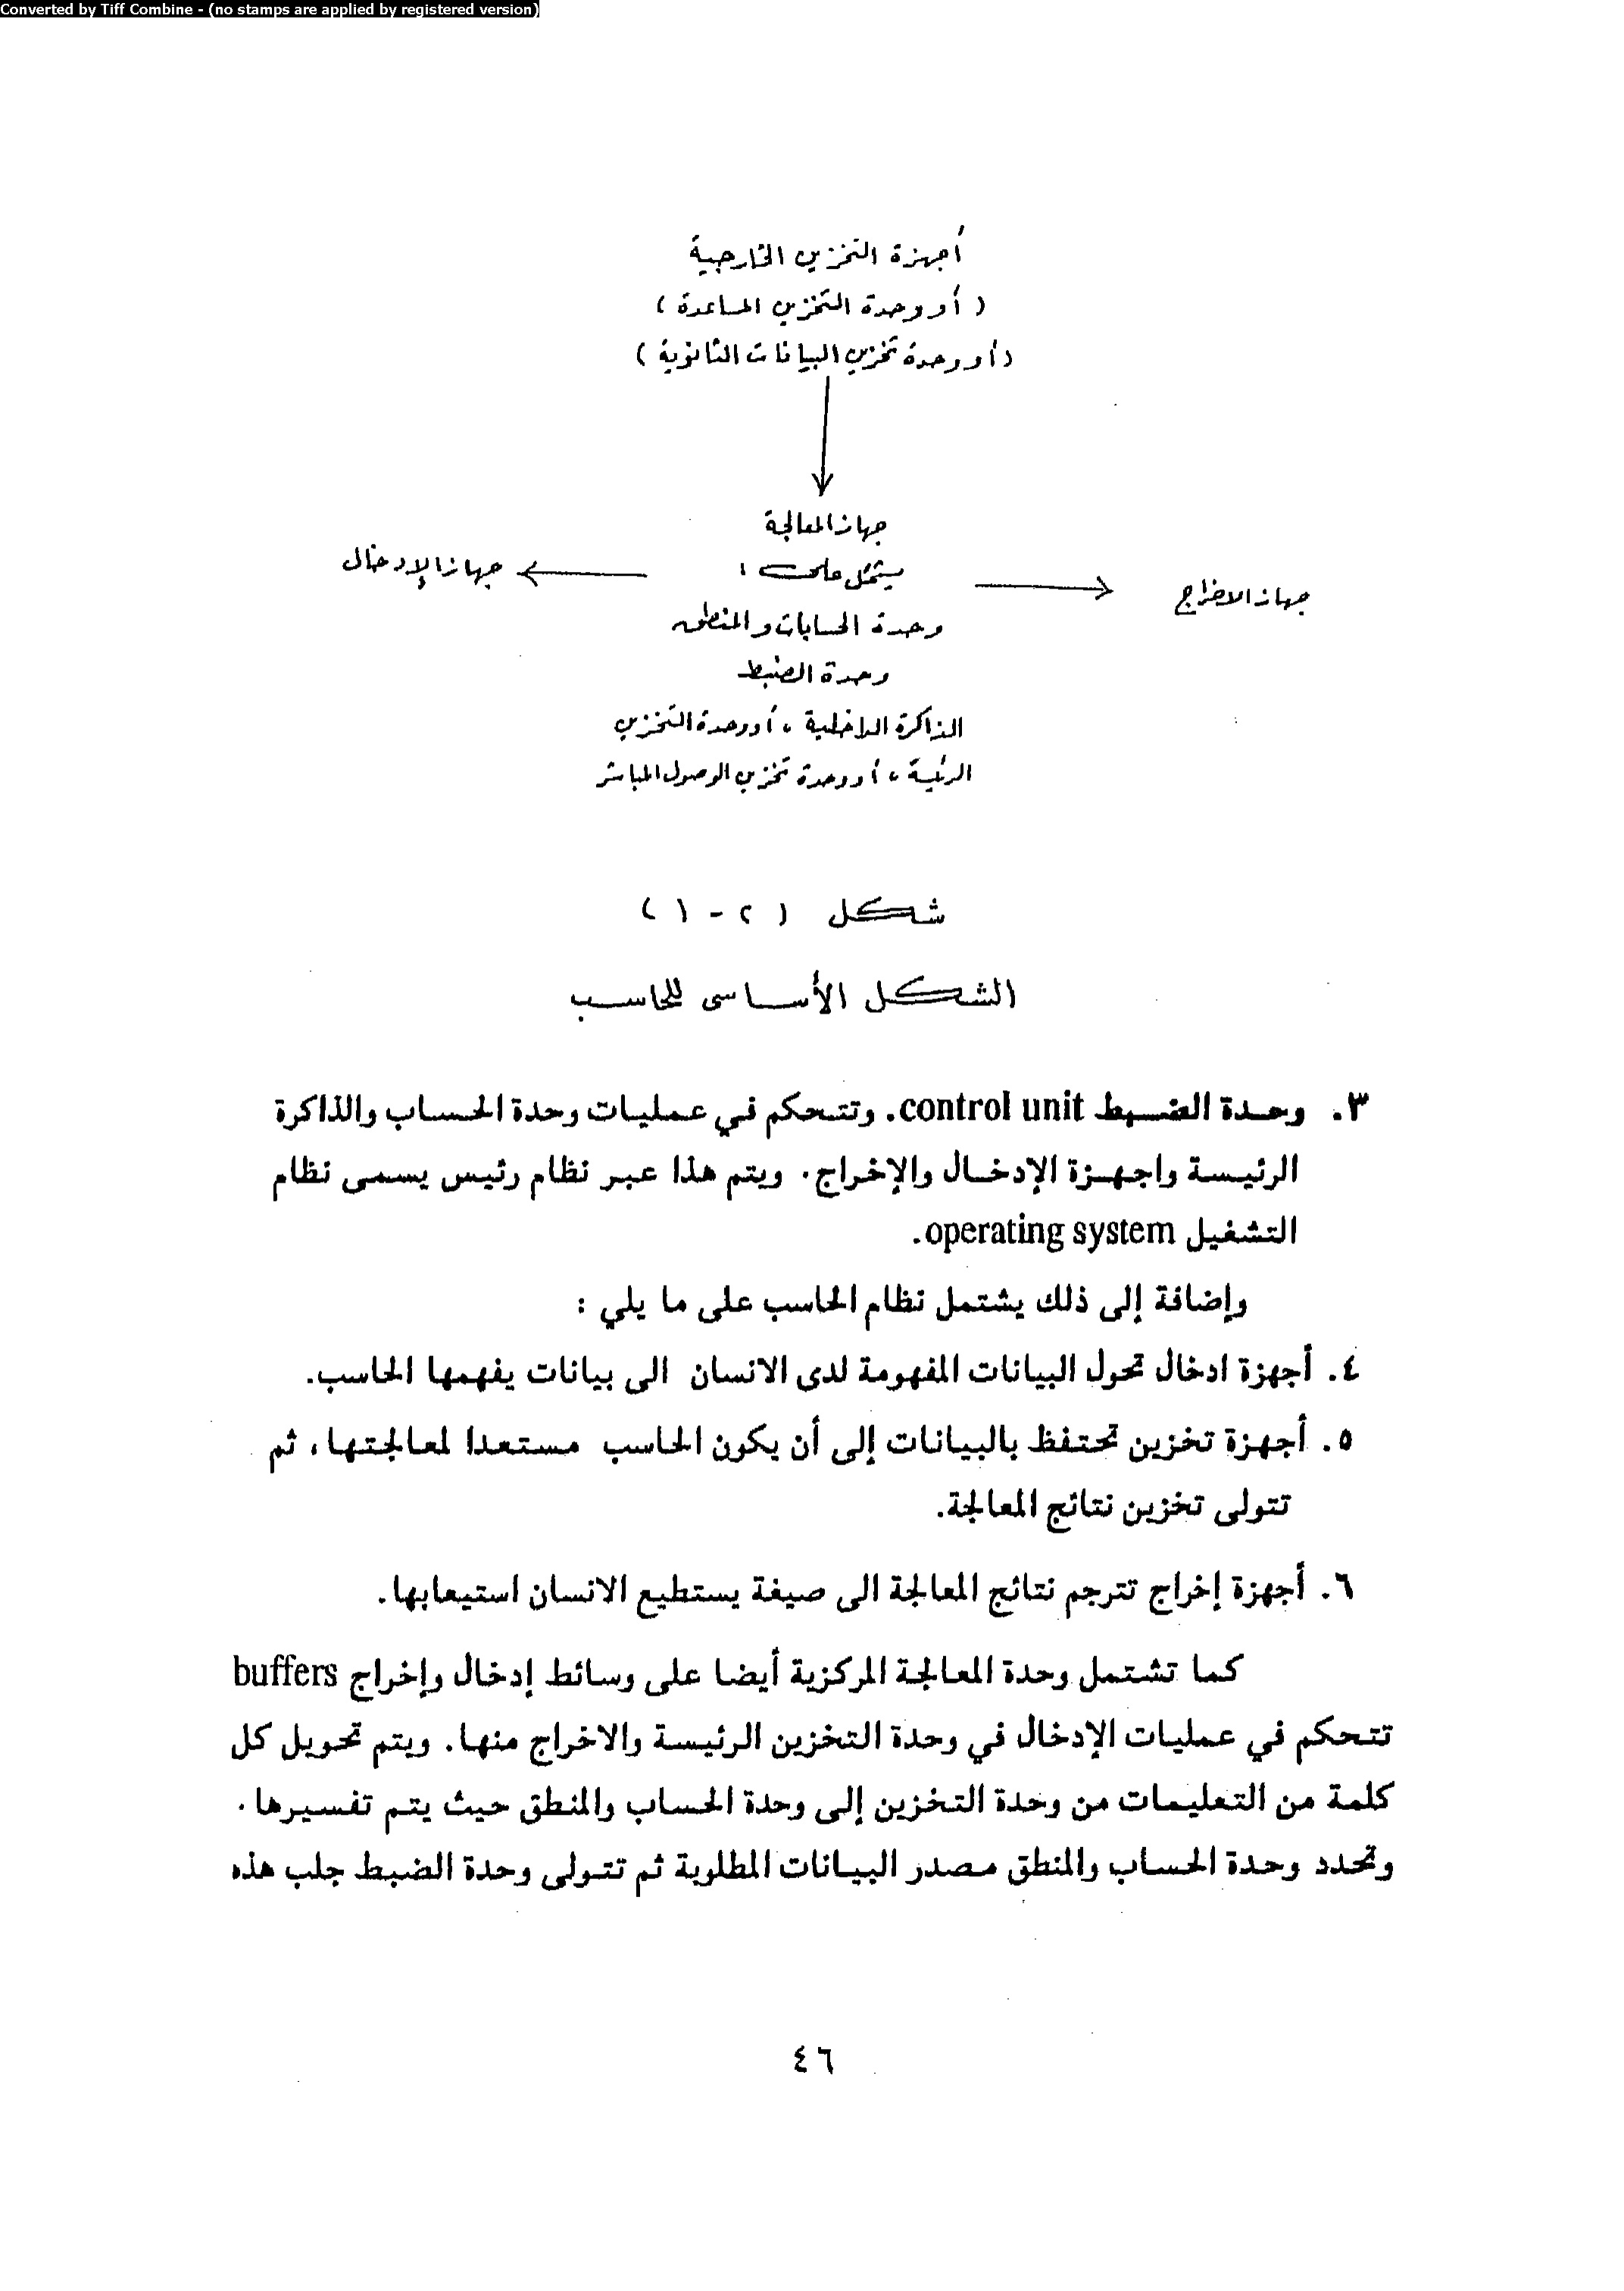 Converted by Tiff Combine - (no stamps are applied by registered version)
أجهزة التخزين الخارجية
( أو وحدة التخزين المساعدة )
( أو وحدة تخزين البيانات الثانوية )
جهاز المعالجة
يشتمل على :
جهاز الإدخال
جهاز الاخراج
وحدة الحسابات والمنطق
وحدة الضبط
الذاكرة الداخلية ، أو وحدة التخزين
الرئيسة ، أو وحدة تخزين الوصول المباشر
شكل ( ٢ - ١ )
الشكل الأساسى للحاسب
٣. وحدة الضبط control unit. وتتحكم في عمليات وحدة الحساب والذاكرة
الرئيسة واجهزة الإدخال والإخراج. ويتم هذا عبر نظام رئيس يسمى نظام
التشغيل operating system.
وإضافة إلى ذلك يشتمل نظام الحاسب على ما يلي :
٤. أجهزة ادخال تحول البيانات المفهومة لدى الانسان الى بيانات يفهمها الحاسب.
٥. أجهزة تخزين تحتفظ بالبيانات إلى أن يكون الحاسب مستعدا لمعالجتها، ثم
تتولى تخزين نتائج المعالجة.
٦. أجهزة إخراج تترجم نتائج المعالجة الى صيغة يستطيع الانسان استيعابها.
كما تشتمل وحدة المعالجة المركزية أيضا على وسائط إدخال وإخراج buffers
تتحكم في عمليات الإدخال في وحدة التخزين الرئيسة والاخراج منها. ويتم تحويل كل
كلمة من التعليمات من وحدة التخزين إلى وحدة الحساب والمنطق حيث يتم تفسيرها.
وتحدد وحدة الحساب والمنطق مصدر البيانات المطلوبة ثم تتولى وحدة الضبط جلب هذه
٤٦